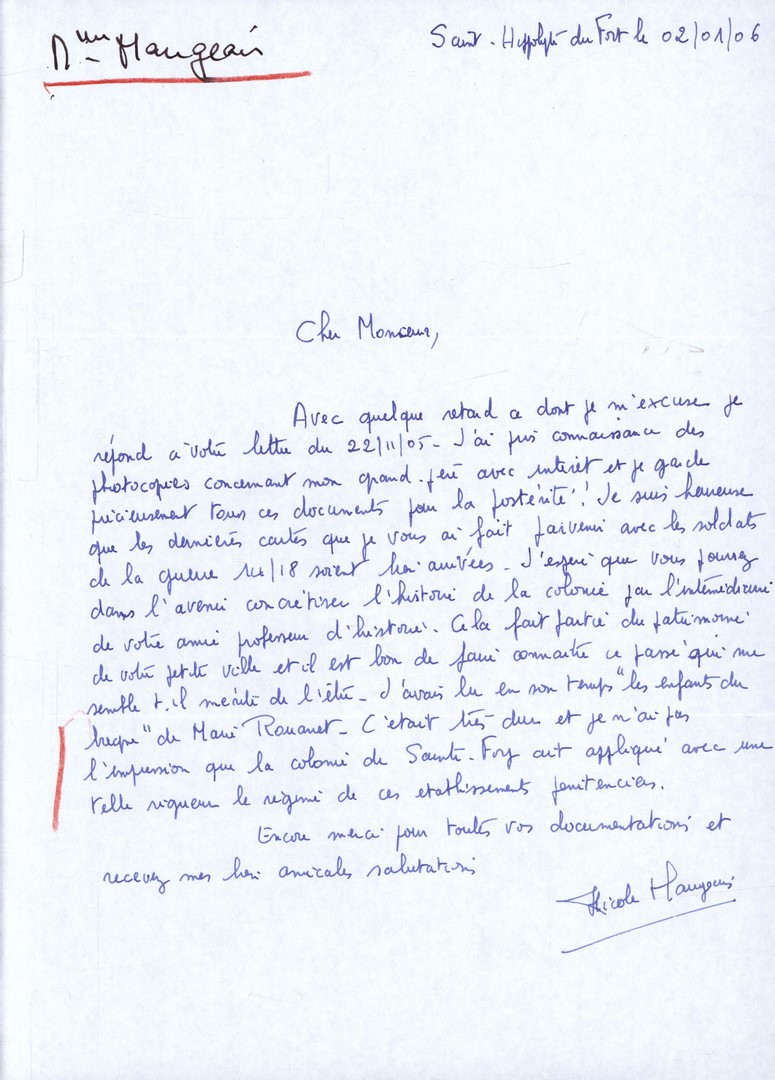 Mme Maugeais
Saint-Hippolyte du Fort le 02/01/06
Cher Monsieur,
Avec quelque retard ce dont je m'excuse je
répond à votre lettre du 22/11/05 - J'ai pris connaissance des
photocopies concernant mon grand-père avec intérêt et je garde
précieusement tous ces documents pour la postérité! Je suis heureuse
que les dernières cartes que je vous ai fait parvenir avec les soldats
de la guerre 14/18 soient bien arrivées - J'espère que vous pourrez
dans l'avenir concrétiser l'histoire de la colonie par l'intermédiaire
de votre amie professeur d'histoire. Cela fait partie du patrimoine
de votre petite ville et il est bon de faire connaitre ce passé qui me
semble t-il mérite de l'être - J'avais lu en son temps "les enfants du
bagne" de Marie Rouanet - C'était très dur et je n'ai pas
l'impression que la colonie de Sainte-Foy ait appliqué avec une
telle rigueur le régime de ces etablissements penitenciers.
Encore merci pour toutes vos documentations et
recevez mes bien amicales salutations
Nicole Maugeais